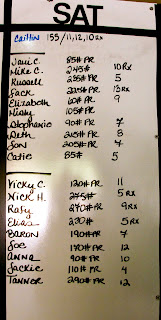 SAT
Caitlin 155/11,12,10RX
Javi C. 85# PR
Mike C. 245# 10RX
Russell 235# PR 5
Jack 205# PR 13RX
Elizabeth 60# PR 9
Missy 105# PR
Stephanie 90# PR 7
Beth 205# PR 8
Jon 205# PR 7
Catie 85# 5
Vicky C. 120# PR 11
Nick H. 275# 5RX
Rafy 270# PR 9RX
Elias 220# 5RX
Baron 190# PR 7
Joe 170# PR 12
Anna 90# PR 10
Jackie 110# PR 4
Tanner 290# PR 12